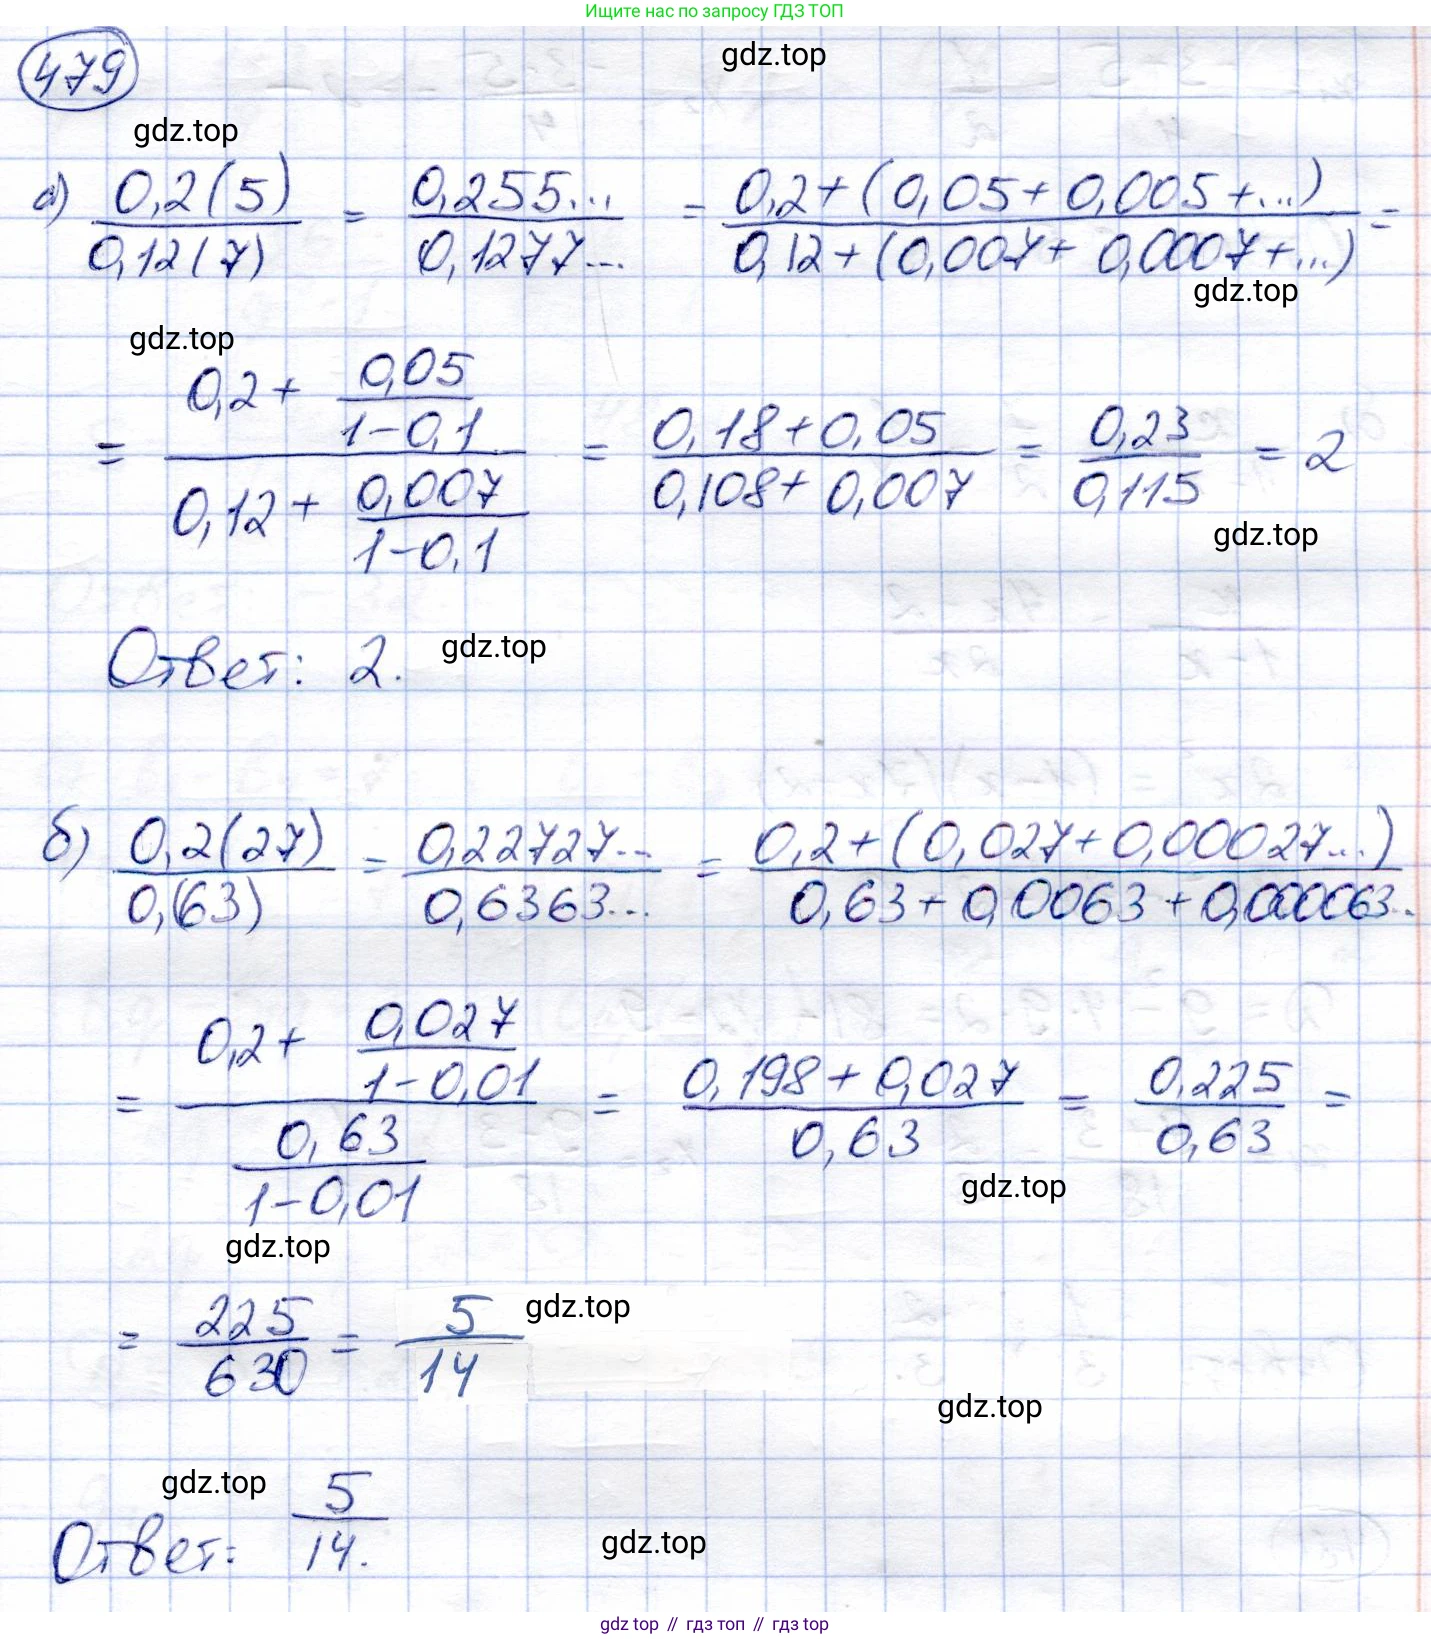 Ищите нас по запросу ГДЗ ТОП
479
gdz.top
gdz.top
а) 0,2(5)/0,12(7) = 0,255.../0,1277... = 0,2+(0,05+0,005+...)/0,12+(0,007+0,0007+...) =
gdz.top
gdz.top
= (0,2+ 0,05/(1-0,1))/(0,12+ 0,007/(1-0,1)) = (0,18+0,05)/(0,108+0,007) = 0,23/0,115 = 2
gdz.top
Ответ: 2.
gdz.top
б) 0,2(27)/0,(63) = 0,22727.../0,6363... = 0,2+(0,027+0,00027...)/0,63+0,0063+0,000063..
= (0,2+ 0,027/(1-0,01))/(0,63/(1-0,01)) = (0,198+0,027)/0,63 = 0,225/0,63 =
gdz.top
gdz.top
= 225/630 = 5/14
gdz.top
gdz.top
gdz.top
Ответ: 5/14.
gdz.top
gdz top // гдз топ // гдз top